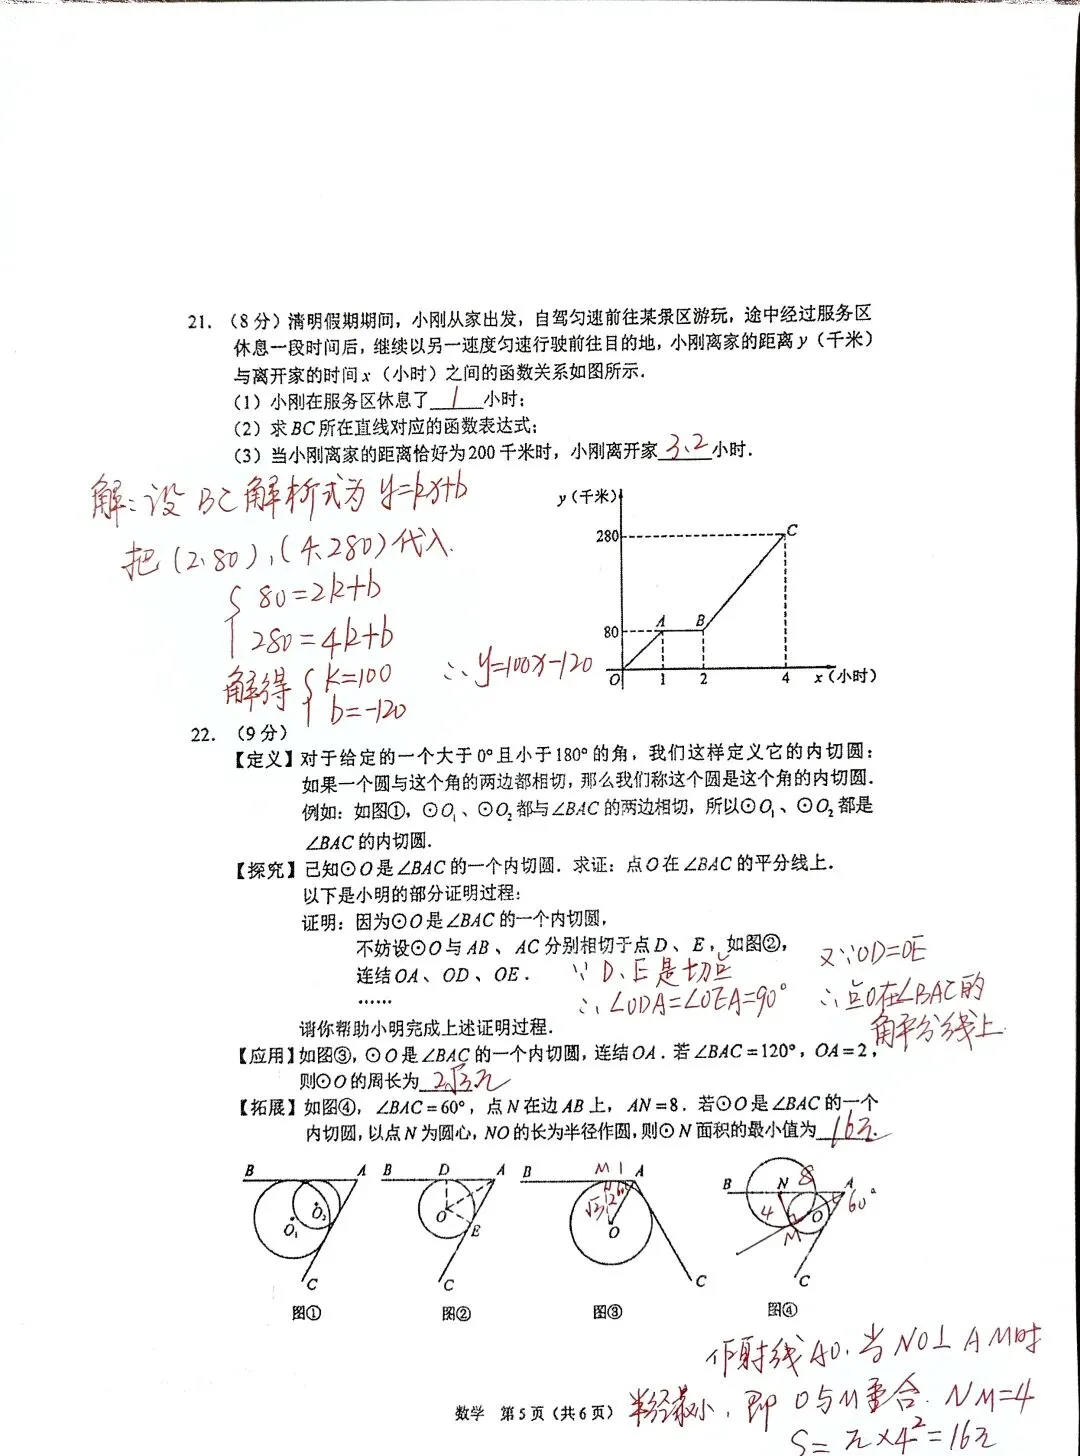 21. (8分)清明假期期间，小刚从家出发，自驾匀速前往某景区游玩，途中经过服务区
休息一段时间后，继续以另一速度匀速行驶前往目的地，小刚离家的距离y（千米）
与离开家的时间x（小时）之间的函数关系如图所示.
(1) 小刚在服务区休息了 1 小时；
(2) 求BC所在直线对应的函数表达式；
(3) 当小刚离家的距离恰好为200千米时，小刚离开家 3.2 小时.
解：设BC解析式为y=kx+b
把(2,80),(4,280)代入.
{80=2k+b
280=4k+b
解得{k=100
b=-120
∴y=100x-120
y（千米）
280
C
80
A
B
O
1
2
4
x（小时）
22. (9分)
【定义】对于给定的一个大于0°且小于180°的角，我们这样定义它的内切圆：
如果一个圆与这个角的两边都相切，那么我们称这个圆是这个角的内切圆.
例如：如图①，⊙O₁、⊙O₂都与∠BAC的两边相切，所以⊙O₁、⊙O₂都是
∠BAC的内切圆.
【探究】已知⊙O是∠BAC的一个内切圆.求证：点O在∠BAC的平分线上.
以下是小明的部分证明过程：
证明：因为⊙O是∠BAC的一个内切圆，
不妨设⊙O与AB、AC分别相切于点D、E，如图②，
连结OA、OD、OE.
……
∵D、E是切点
∴∠ODA=∠OEA=90°
又∵OD=OE
∴点O在∠BAC的
角平分线上.
请你帮助小明完成上述证明过程.
【应用】如图③，⊙O是∠BAC的一个内切圆，连结OA.若∠BAC=120°，OA=2，
则⊙O的周长为 2√3π
【拓展】如图④，∠BAC=60°，点N在边AB上，AN=8.若⊙O是∠BAC的一个
内切圆，以点N为圆心，NO的长为半径作圆，则⊙N面积的最小值为 16π.
B
A
O₁
O₂
C
图①
B
D
A
O
E
C
图②
B
M
1
A
√3
2
60°
O
C
图③
B
N
8
A
60°
4
O
M
C
图④
作射线AO.当NO⊥AM时
半径最小，即O与M重合.NM=4
S=π×4²=16π
数学 第5页（共6页）